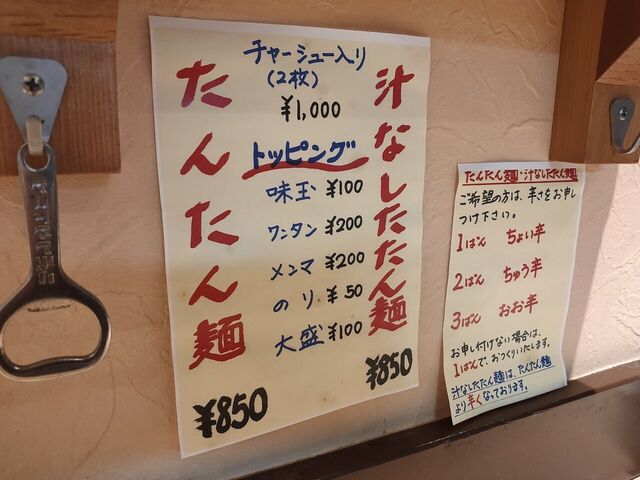 汁なしたたん麺
¥850
チャーシュー入り
(2枚)
¥1,000
トッピング
味玉 ¥100
ワンタン ¥200
メンマ ¥200
のり ¥50
大盛 ¥100
たんたん麺
¥850
たんたん麺・汁なしたたん麺
ご希望の方は、辛さをお申し
つけ下さい。
1ばん ちょい辛
2ばん ちゅう辛
3ばん おお辛
お申し付けない場合は、
1ばんで、おつくりいたします。
汁なしたたん麺は、たんたん麺
より辛くなっております。